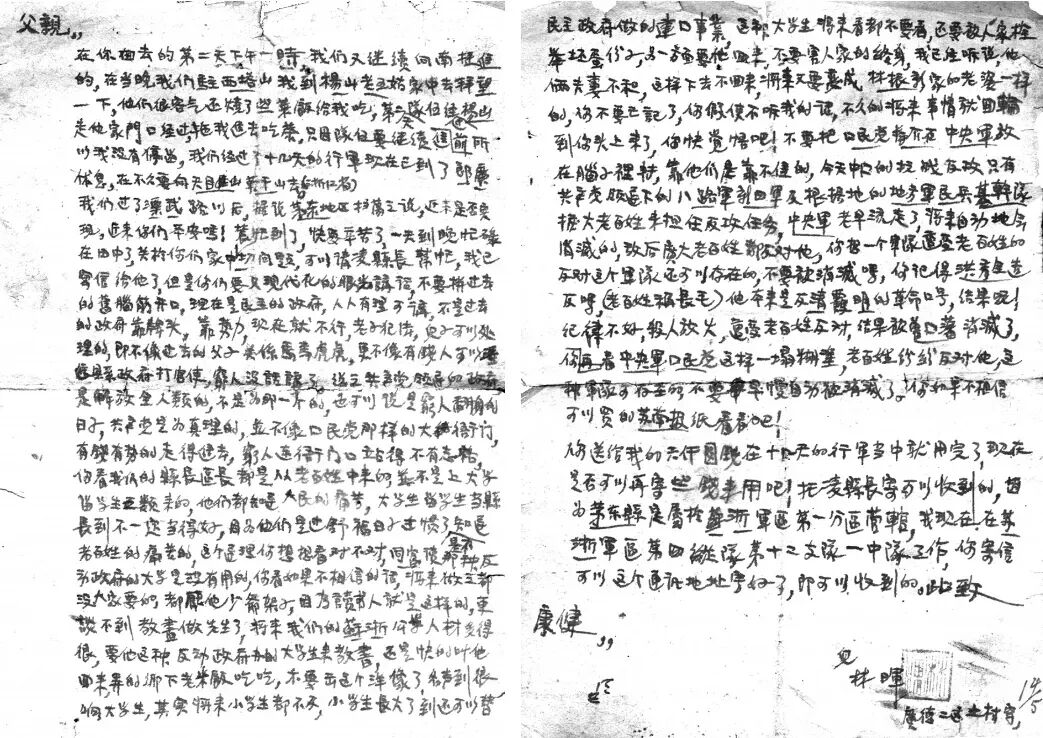 父親,,
在你回去的第二天下午一時,我们又继续向南挺進
的,在当晚我们駐西塔山我到楊山老王姑家中去拜望
一下,他们很客气还烧了些菜飯给我吃,第二天隊伍经楊山
走他家門口经过拖我進去吃茶,只因隊伍要继續週前所
以我没有停留,我们经过了十几天的行軍现在已到了郎廣
休息,在不久要向天目山 去(浙江省)
我们过了漂武路以后,据说茅东地区 主说,近来是否实
现,近来你们平安吗!荒忙到了,快要辛苦了,一天到晚忙碌
在田中了,关於你们家中切问题,可以请凌縣長幫忙,我已
寫信给他了,但是你们要又现代化的眼光講话,不要拼过去
的舊腦筋开口,现在是民主的政府,人人有理可講,不是过去
的政府靠牌头,靠势力,现在就不行,老子犯法,兒子可以处
理的,即不像过去的父子关係馬馬虎虎,更不像有錢人可以
縣政府打官司,窮人没話講了,從三共产党领导的政府
是解放全人類的,不是为那一界的,也可以说是窮人翻身的
日子,共产党是为真理的,並不像口民党那样的大衙门,
有錢有勢的走得進去,窮人連衙门口站得不有志 ,
你看我们的縣長區長都是从老百姓中来的並不是上大学
留学生五数来的,他们都知道人民的痛苦,大学生留学生当縣
長到不一定当得好,因为他们是过舒福日子过慣了知道
老百姓的痛苦的,这个道理你想想看对不对,同富隆那种反
动政府的大学是没有用的,你看如果不相信的话,将来做立都
没人家要的,都 他少爺架子,因为讀書人就是这样的,更
談不到教書做先生了,将来我们的蘇浙公学人材多得
很,要他这种反动政府办的大学生来教書,还是快的叫他
回来弄的乡下老米飯吃吃,不要丢这个洋像了,名声到很
响大学生,其实将来小学生都不及,小学生長大了到还可以替
民主政府做的建口事業 这都大学生将来看都不要看,还要 人家挨
坏蛋份子,另一方面要他回来,不要害人家的终身,我已经听说,他
俩夫妻不和,这样下去不回来,将来又要变成 林根 家的老婆一样
的,你不要忘記了,你假使不听我的话,不久的将来事情就回輪
到你头上来了,你快觉悟吧!不要把口民党蒋介石中央軍放
在腦子裡转,靠他们是靠不住的,今天中口的抗战反攻只有
共产党领道下的八路軍新四軍及根据地的地方軍民兵基幹隊
广大老百姓来担任反攻任务,中央軍老早就走了,将来自动地会
消滅的,敌后广大老百姓都反对他,你想一个軍隊遭受老百姓的
反对这个軍隊还可以存在的,不要被消滅嗎,你記得洪秀全造
反嗎(老百姓稱長毛)他本来是反清 明的革命口号,结果呢!
纪律不好,殺人放火,遭受老百姓反对,结果被曾口藩消滅了,
你再看中央軍口民党这样一塌糊塗,老百姓纷纷反对他,这
种軍隊可存在吗不要 早慢自动被消滅了。你如果不相信
可以买的苏常报纸看看吧!
你送给我的六仟圆錢在十几天的行軍当中就用完了,现在
是否可以再寄些錢来用吧!托凌縣長寄可以收到的,因
为茅东縣是屬於蘇浙軍區第一分區管轄,我现在在苏
浙軍區第四縱隊第十二支隊一中隊工作,你寄信
可以这个通訊地址寄好了,即可以收到的。此致
康健,,
兒
林暉
14/5
廣德二区 村寄,